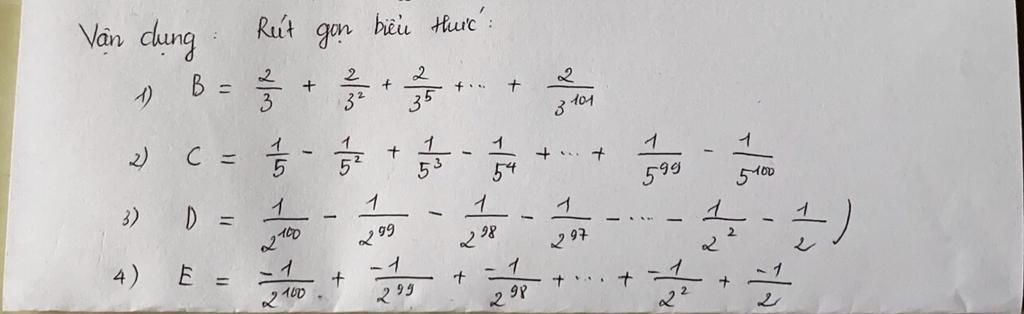 Vận dụng : Rút gọn biểu thức :
1) B = 2/3 + 2/3² + 2/3⁵ + ... + 2/3¹⁰¹
2) C = 1/5 - 1/5² + 1/5³ - 1/5⁴ + ... + 1/5⁹⁹ - 1/5¹⁰⁰
3) D = 1/2¹⁰⁰ - 1/2⁹⁹ - 1/2⁹⁸ - 1/2⁹⁷ - ... - 1/2² - 1/2 )
4) E = -1/2¹⁰⁰ + -1/2⁹⁹ + -1/2⁹⁸ + ... + -1/2² + -1/2